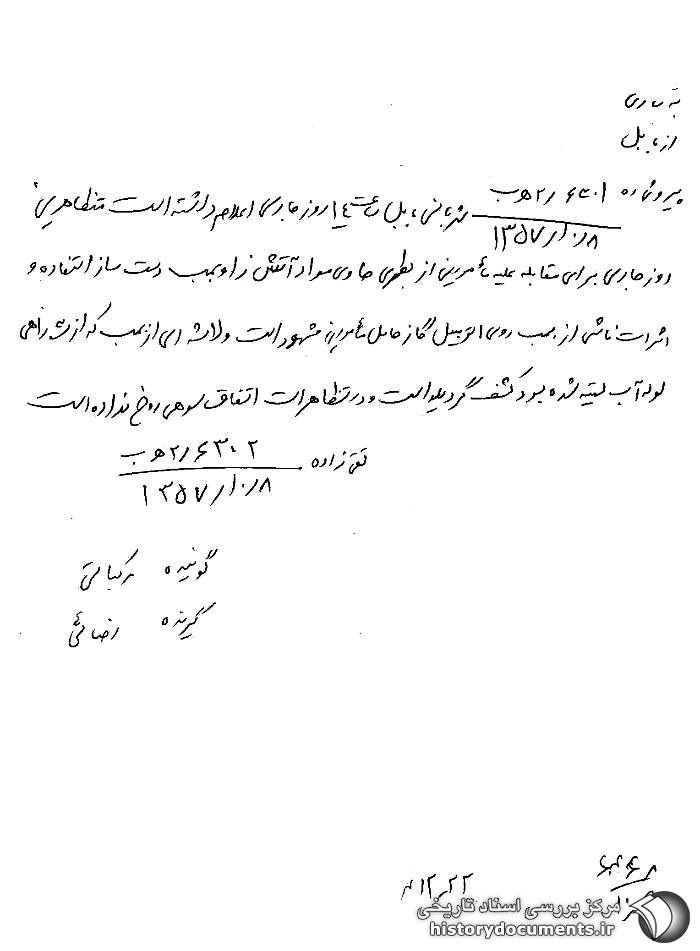 به ساری
از بابل
پیرو شماره ۲٫۶۳۰۱ ه‍ ب
۱۳۵۷٫۱۰٫۸
شهربانی بابل ساعت ۱۴ روز جاری اعلام داشته است متظاهرین
روز جاری برای مقابله علیه مأمورین از بطری حاوی مواد آتش زا و بمب دست ساز استفاده و
اثرات ناشی از بمب روی اتومبیل گاز حامل مأمورین مشهود است و لاشه ای از بمب که از
لوله آب بسته شده بود کشف گردیده است و در تظاهرات اتفاق سوئی رخ نداده است
تقی زاده ۲٫۶۳۰۲ ه‍ ب
۱۳۵۷٫۱۰٫۸
گوینده
گیرنده رضائی
۱۲٫۲۲
مرکز بررسی اسناد تاریخی
historydocuments.ir